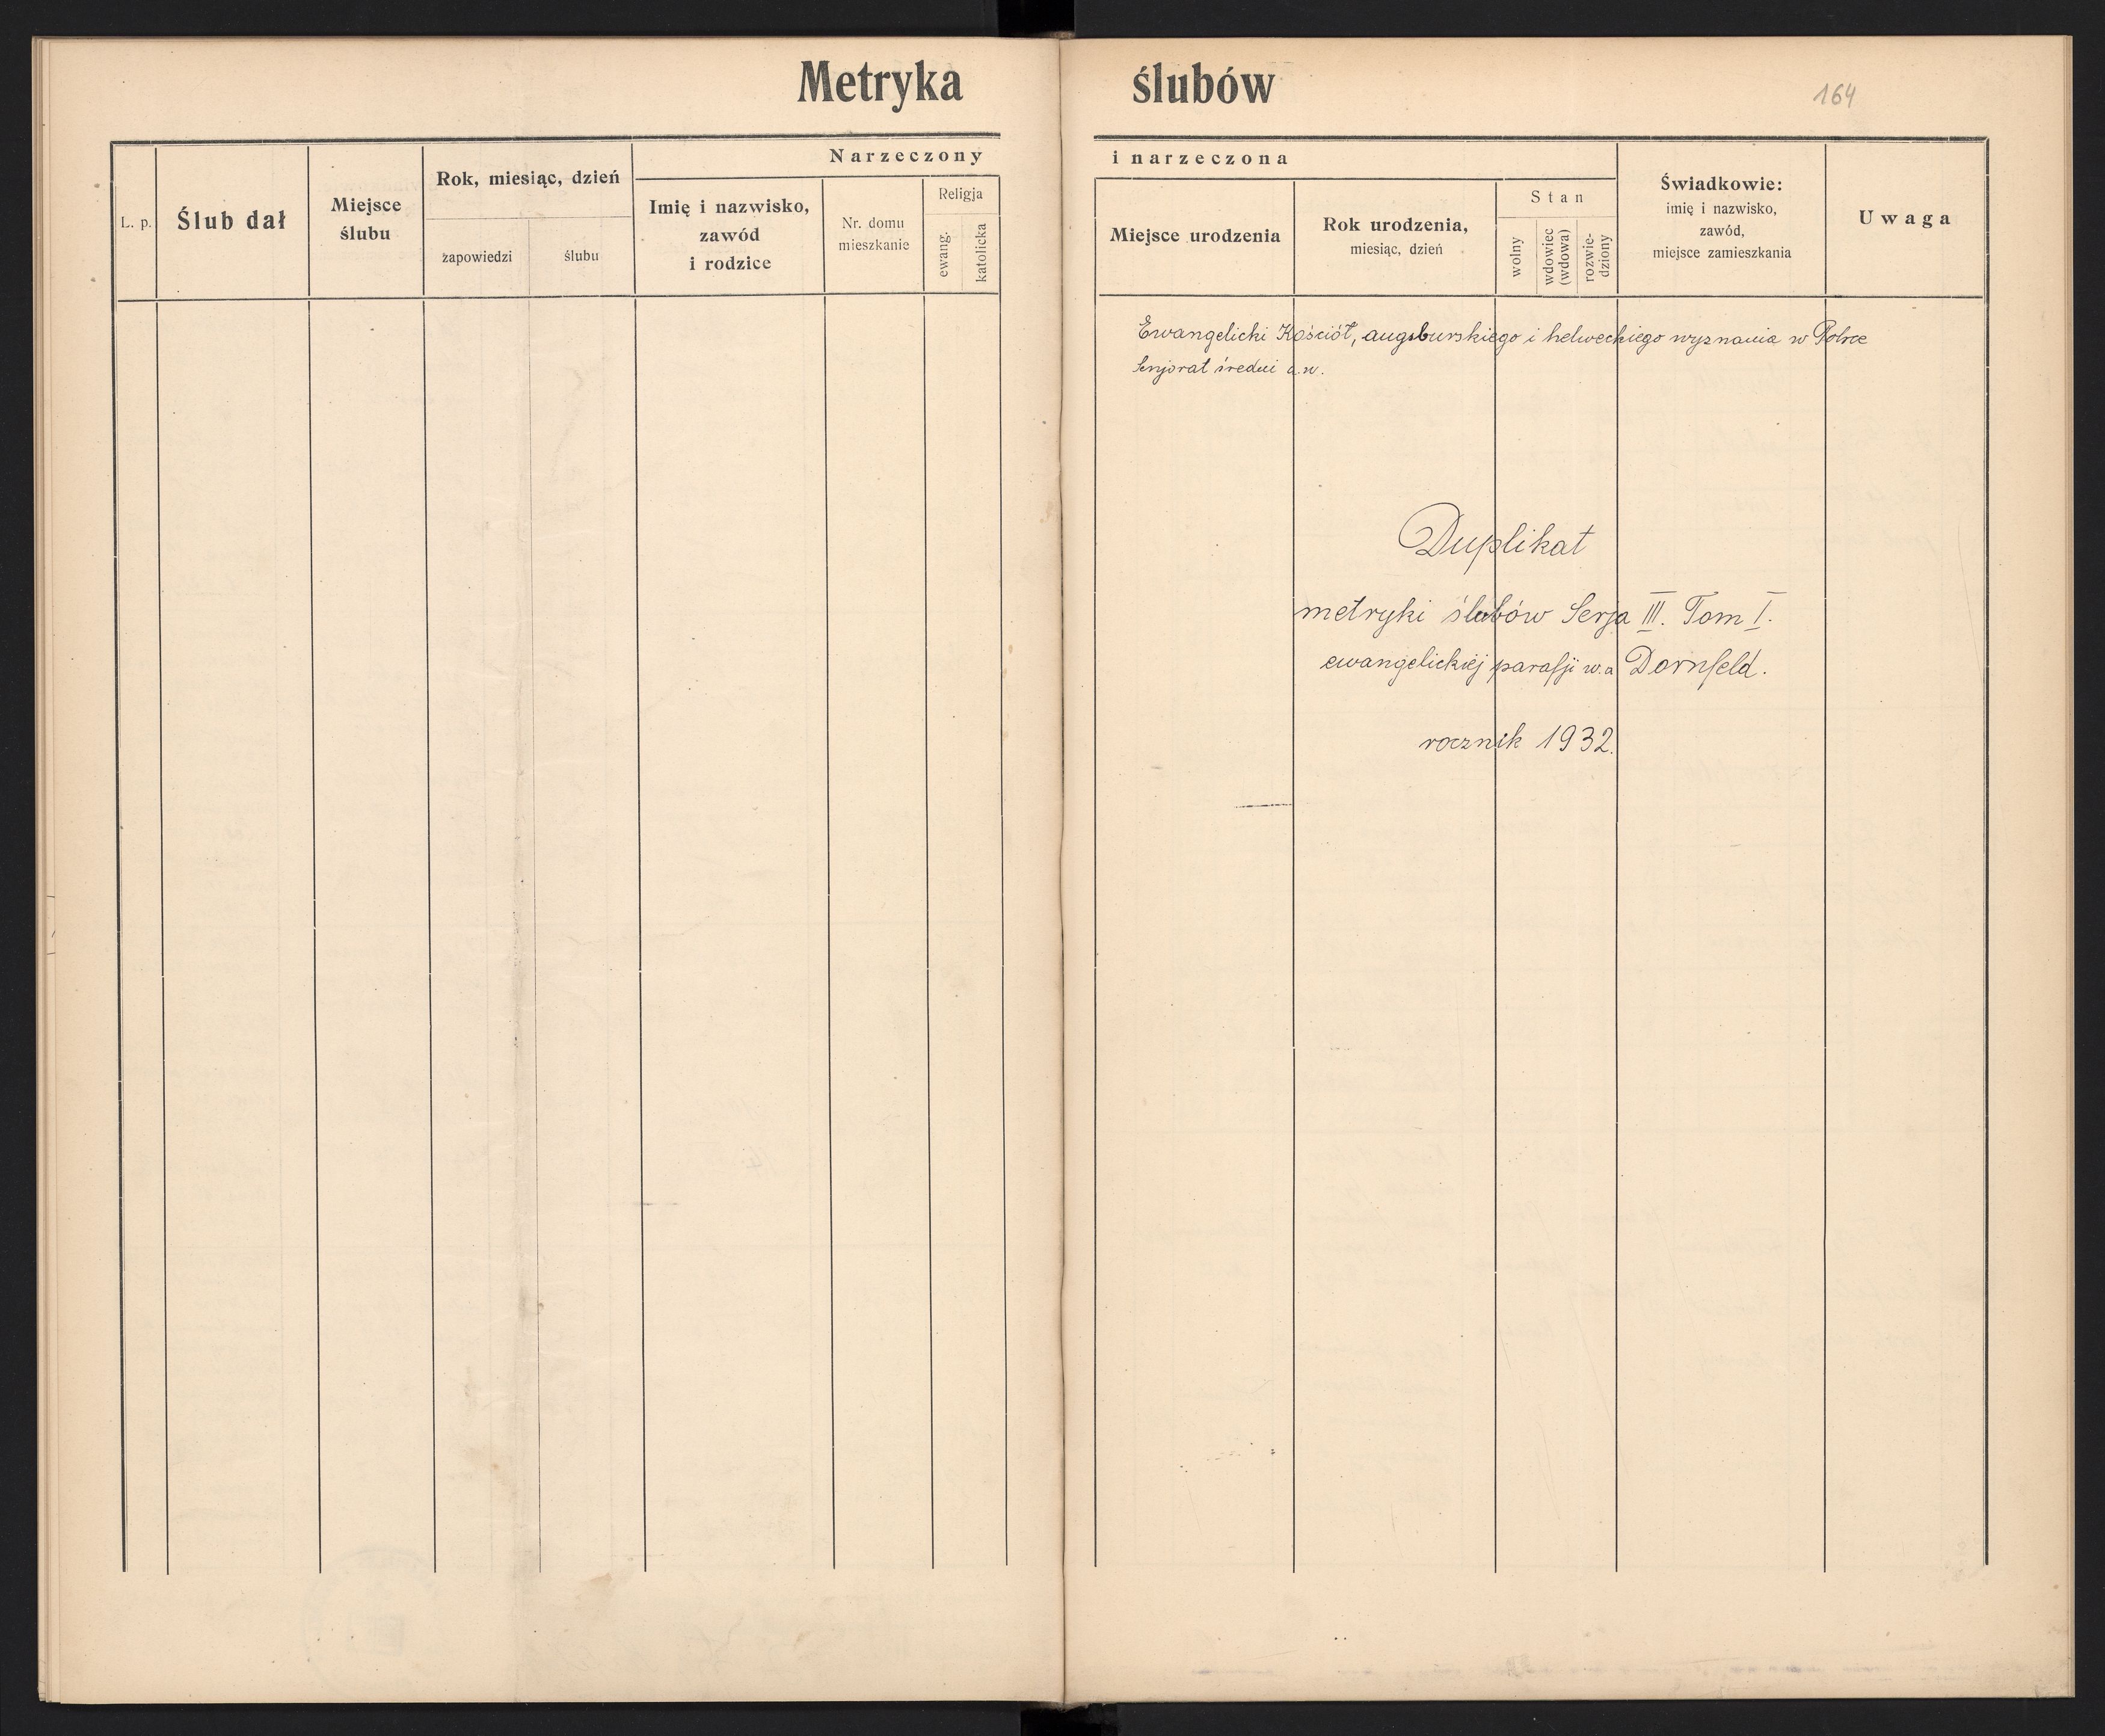 Metryka ślubów
164
Narzeczony i narzeczona
L. p.
Ślub dał
Miejsce
ślubu
Rok, miesiąc, dzień
zapowiedzi
ślubu
Imię i nazwisko,
zawód
i rodzice
Nr. domu
mieszkanie
Religja
ewang.
katolicka
Miejsce urodzenia
Rok urodzenia,
miesiąc, dzień
Stan
wolny
wdowiec
(wdowa)
rozwie-
dziony
Świadkowie:
imię i nazwisko,
zawód,
miejsce zamieszkania
Uwaga
Ewangelicki Kościół, augsburskiego i helweckiego wyznania w Polsce
Senjorat średni a.w.
Duplikat
metryki ślubów Serja III. Tom I.
ewangelickiej parafji w.a Dornfeld.
rocznik 1932.